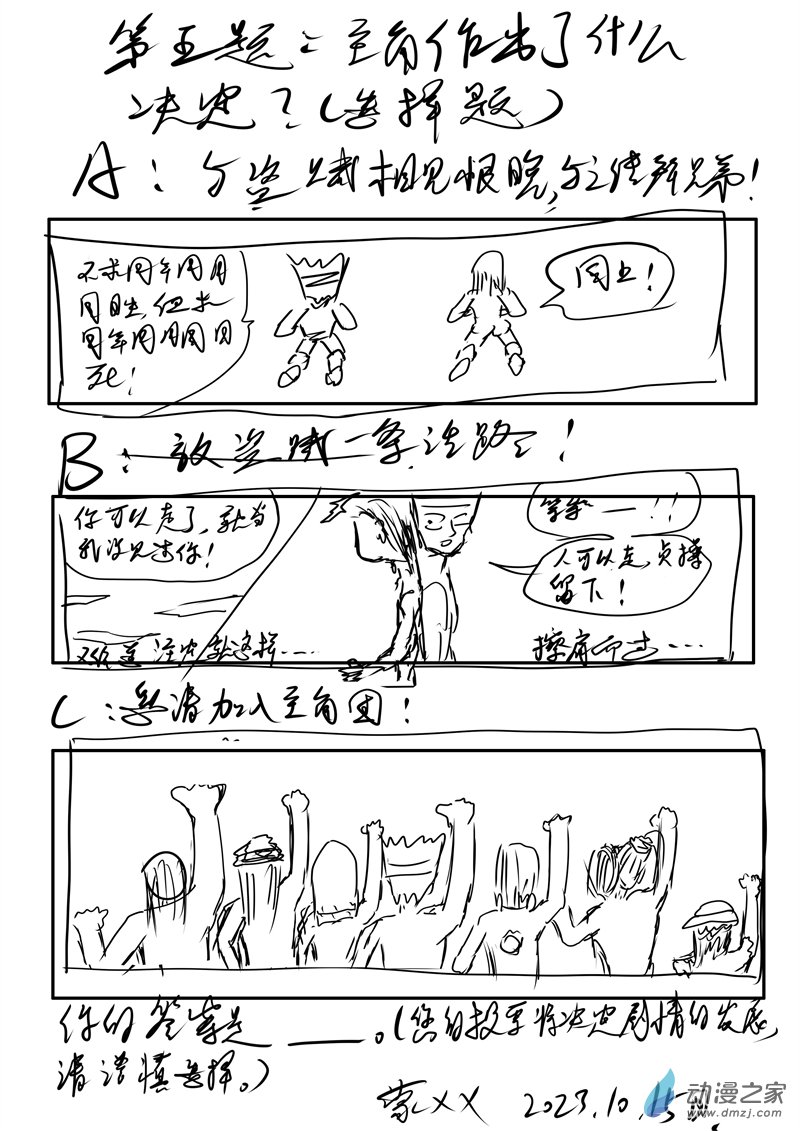 第五题:主角作出了什么
决定?(选择题)
A:与盗贼相见恨晚,与之结拜兄弟!
不求同年同月
同日生,但求
同年同月同日
死!
同上!
B:放盗贼一条活路!
你可以走了,就当
我没见过你!
等等——!!
人可以走,贞操
留下!
擦肩而过……
C:邀请加入主角团!
你的答案是____。(您的投票将决定剧情的发展,
请谨慎选择。)
蒙XX 2023.10.
动漫之家
www.dmzj.com